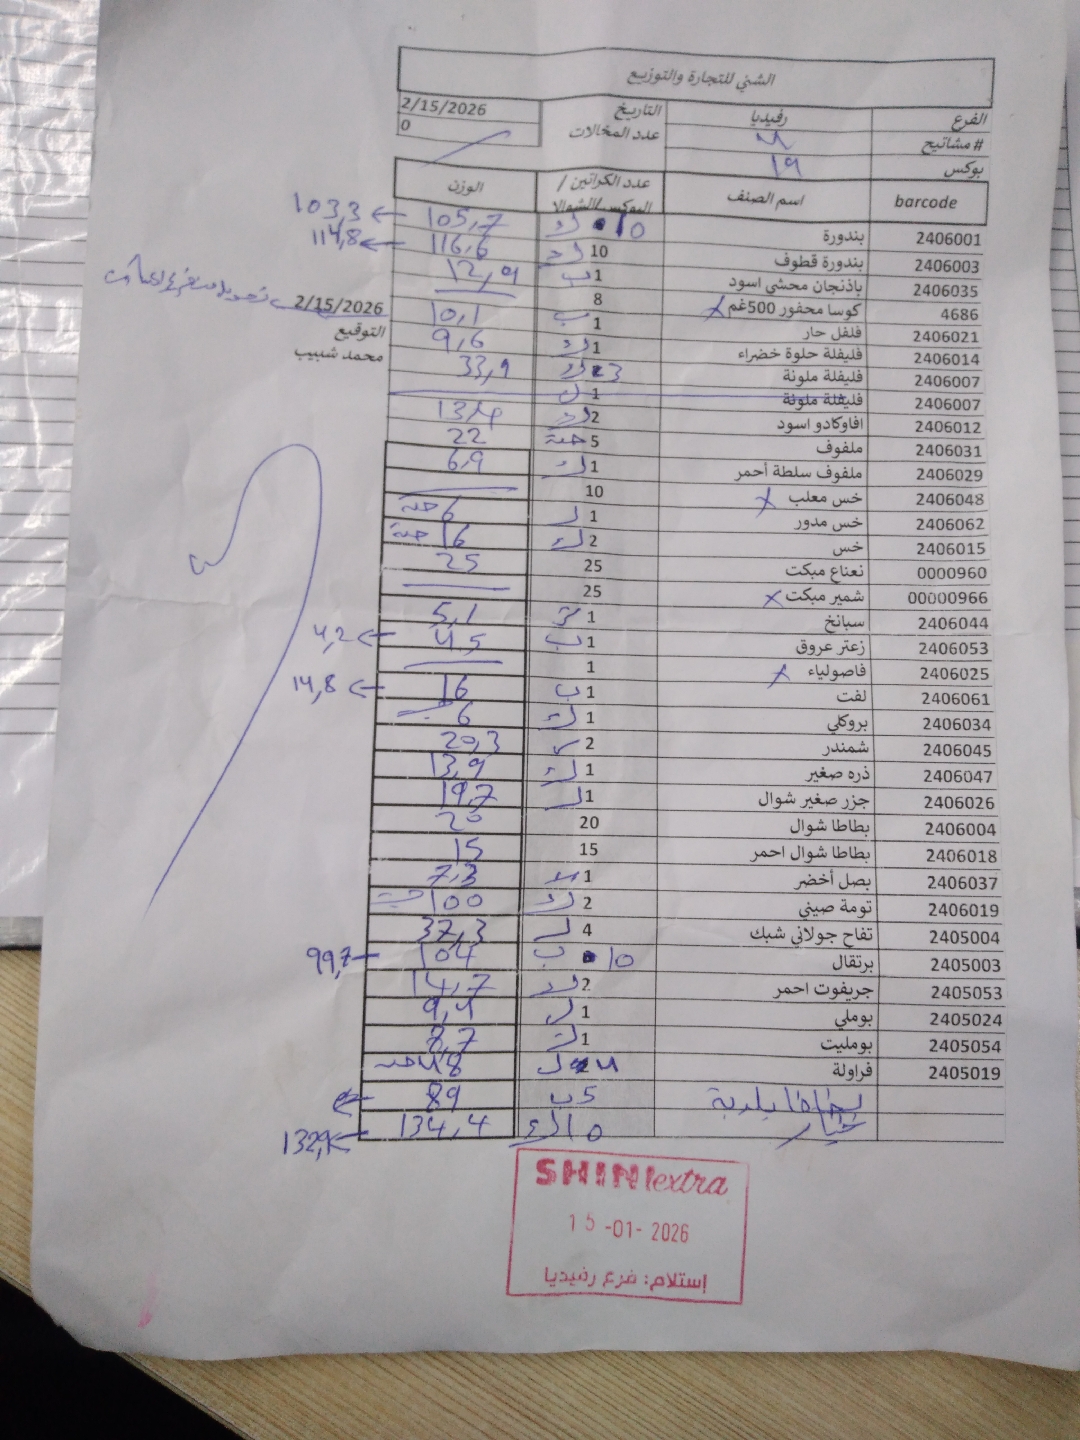 الشني للتجارة والتوزيع
الفرع رفيديا التاريخ 2/15/2026
# مشاتيح عدد المخالات 0
بوكس 19
barcode اسم الصنف عدد الكراتين / البوكس/الشوالا الوزن
2406001 بندورة 10 105,7 ← 103,3
2406003 بندورة قطوف 10 116,6 ← 114,8
2406035 باذنجان محشي اسود 1 ب 12,9
4686 كوسا محفور 500غم x 8
2406021 فلفل حار 1 ب 10,1
2406014 فليفلة حلوة خضراء 1 9,6
2406007 فليفلة ملونة 3 33,9
2406007 فليفلة ملونة 1
2406012 افاوكادو اسود 2 13,4
2406031 ملفوف 5 حبة 22
2406029 ملفوف سلطة أحمر 1 6,9
2406048 خس معلب x 10
2406062 خس مدور 1 6 حبة
2406015 خس 2 16 حبة
0000960 نعناع مبكت 25 25
00000966 شمير مبكت x 25
2406044 سبانخ 1 5,1
2406053 زعتر عروق 1 ب 4.5 ← 4,2
2406025 فاصولياء x 1
2406061 لفت 1 ب 16 ← 14,8
2406034 بروكلي 1 6
2406045 شمندر 2 20,3
2406047 ذره صغير 1 13,9
2406026 جزر صغير شوال 1 19,7
2406004 بطاطا شوال 20 20
2406018 بطاطا شوال احمر 15 15
2406037 بصل أخضر 1 7,3
2406019 تومة صيني 2 100
2405004 تفاح جولاني شبك 4 37,3
2405003 برتقال 10 ب 104 ← 99,7
2405053 جريفوت احمر 2 14,7
2405024 بوملي 1 9,4
2405054 بومليت 1 8,7
2405019 فراولة 4 48 حبة
بطاطا بلدية 5 ب 89 ←
خيار 10 134,4 ←
2/15/2026
التوقيع
محمد شبيب
SHINI extra
15 -01- 2026
إستلام: فرع رفيديا